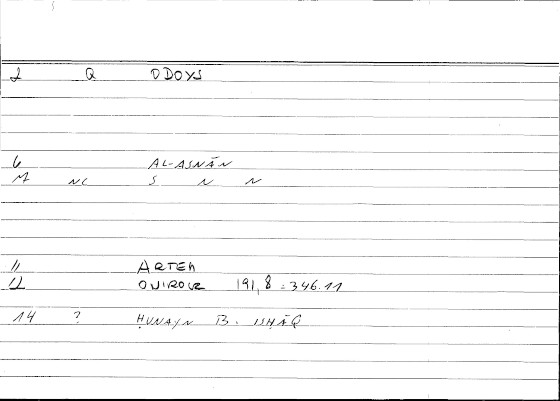 2 Q ODOYS
6 AL-ASNĀN
M NC S N N
11 ARTEM
12 191,8 = 346.11
14 ? ḤUNAYN B. ISḤĀQ